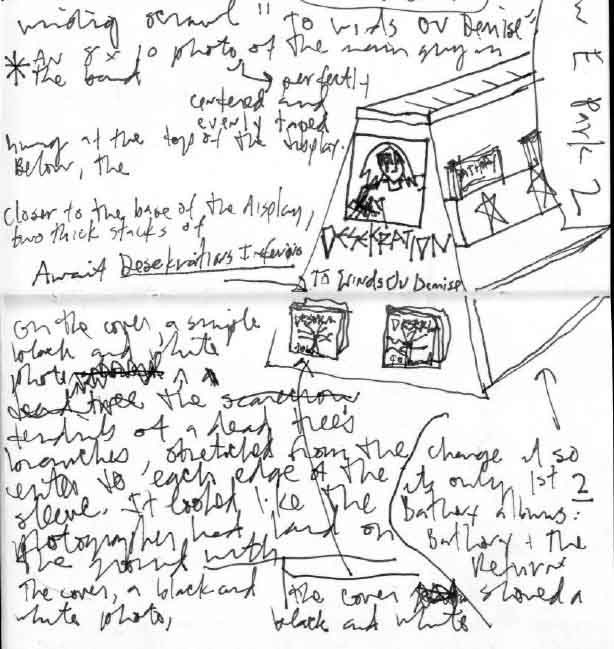 "To Winds Ov Demise"
* An 8 x 10 photo of the main guy in
the band
perfectly
centered and
evenly taped
hung at the top of the display.
Below, the
closer to the base of the display,
two thick stacks of
Await Desekrations Inferious
W E Park 2
BATHORY
DESEKRATION
To Winds Ov Demise
on the cover, a simple
black and white
photo
dead tree the scarecrow
tendrils of a dead tree's
branches, stretched from the
center to each edge of the
sleeve. It looked like the
photographer had laid on
the ground with
The cover, a black and
white photo,
the cover showed a
black and white
change it so
its only 1st 2
Bathory albums:
Bathory + the
Return